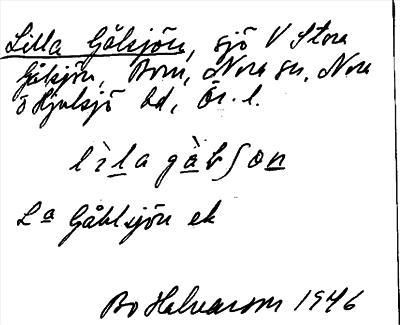 Lilla Gålsjön, sjö V Stora
Gålsjön, Born, Nora sn, Nora
o Hjulsjö bd, Ör. l.
lìla gàbʃon
La Gåblsjön ek
Bo Halvarson 1946